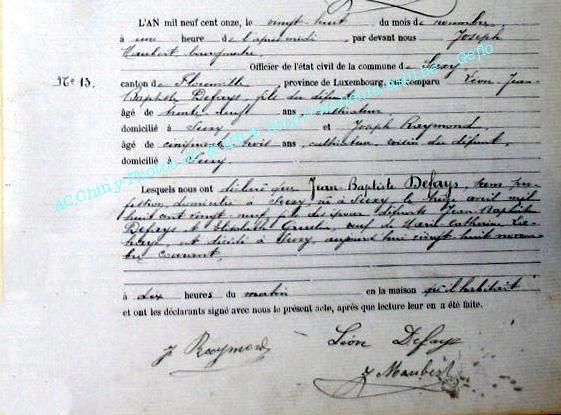 L'AN mil neuf cent onze, le vingt huit du mois de novembre,
à une heure de l'après midi par devant nous Joseph
Maubert, bourgmestre
Officier de l'état civil de la commune de Suxy,
N° 13. canton de Florenville, province de Luxembourg, est comparu Léon Jean-
Baptiste Defays, fils du défunt,
âgé de trente neuf ans, cultivateur,
domicilié à Suxy et Joseph Raymond,
âgé de cinquante trois ans, cultivateur, voisin du défunt,
domicilié à Suxy
Lesquels nous ont déclaré que Jean Baptiste Defays, sans pro-
fession, domicilié à Suxy, né à Suxy, le avril mil
huit cent vingt-neuf, fils des époux défunts Jean Baptiste
Defays et Elisabeth veuf de Marie Catherine
est décédé à Suxy, aujourd'hui vingt-huit novem-
bre courant,
à dix heures du matin en la maison qu'il habitait
et ont les déclarants signé avec nous le présent acte, après que lecture leur en a été faite.
J Raymond Léon Defays
J Maubert